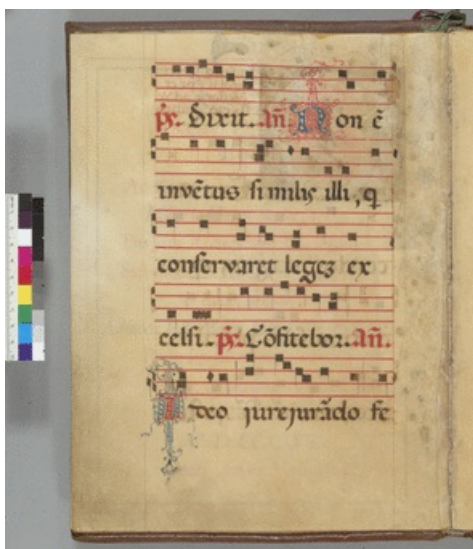 p̄s. Dixit. Añ. Non ē
invētus similis illi, q
conservaret legez ex
celsi. p̄s. Cōfitebor. Añ.
Ideo jurejurādo fe